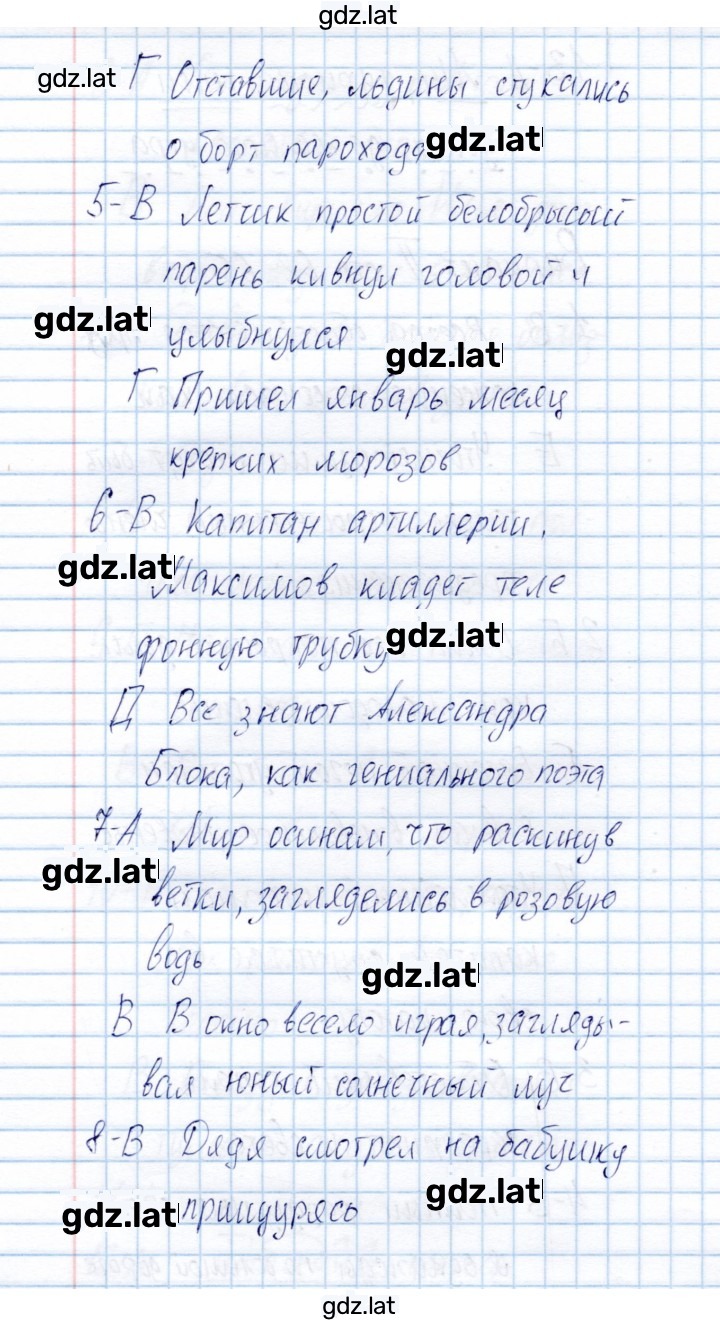 gdz.lat
gdz.lat Г Отставшие, льдины стукались
о борт парохода gdz.lat
5-В Летчик простой белобрысый
парень кивнул головой и
gdz.lat улыбнулся
gdz.lat
Г Пришел январь месяц
крепких морозов
6-В Капитан артиллерии,
gdz.lat Максимов кладет теле
фонную трубку gdz.lat
Д Все знают Александра
Блока, как гениального поэта
7-А Мир осинам, что раскинув
gdz.lat ветки, загляделись в розовую
водь
gdz.lat
В В окно весело играя, загляды-
вал юный солнечный луч
8-В Дядя смотрел на бабушку
gdz.lat
gdz.lat прищурясь
gdz.lat